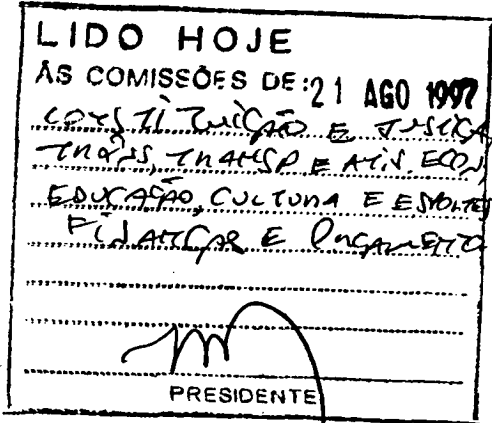 LIDO HOJE
ÀS COMISSÕES DE: 21 AGO 1997
CONSTITUIÇÃO E JUSTIÇA,
TRÂNS, TRANSP E ATIV. ECON,
EDUCAÇÃO, CULTURA E ESPORTES
FINANÇAS E ORÇAMENTO
PRESIDENTE